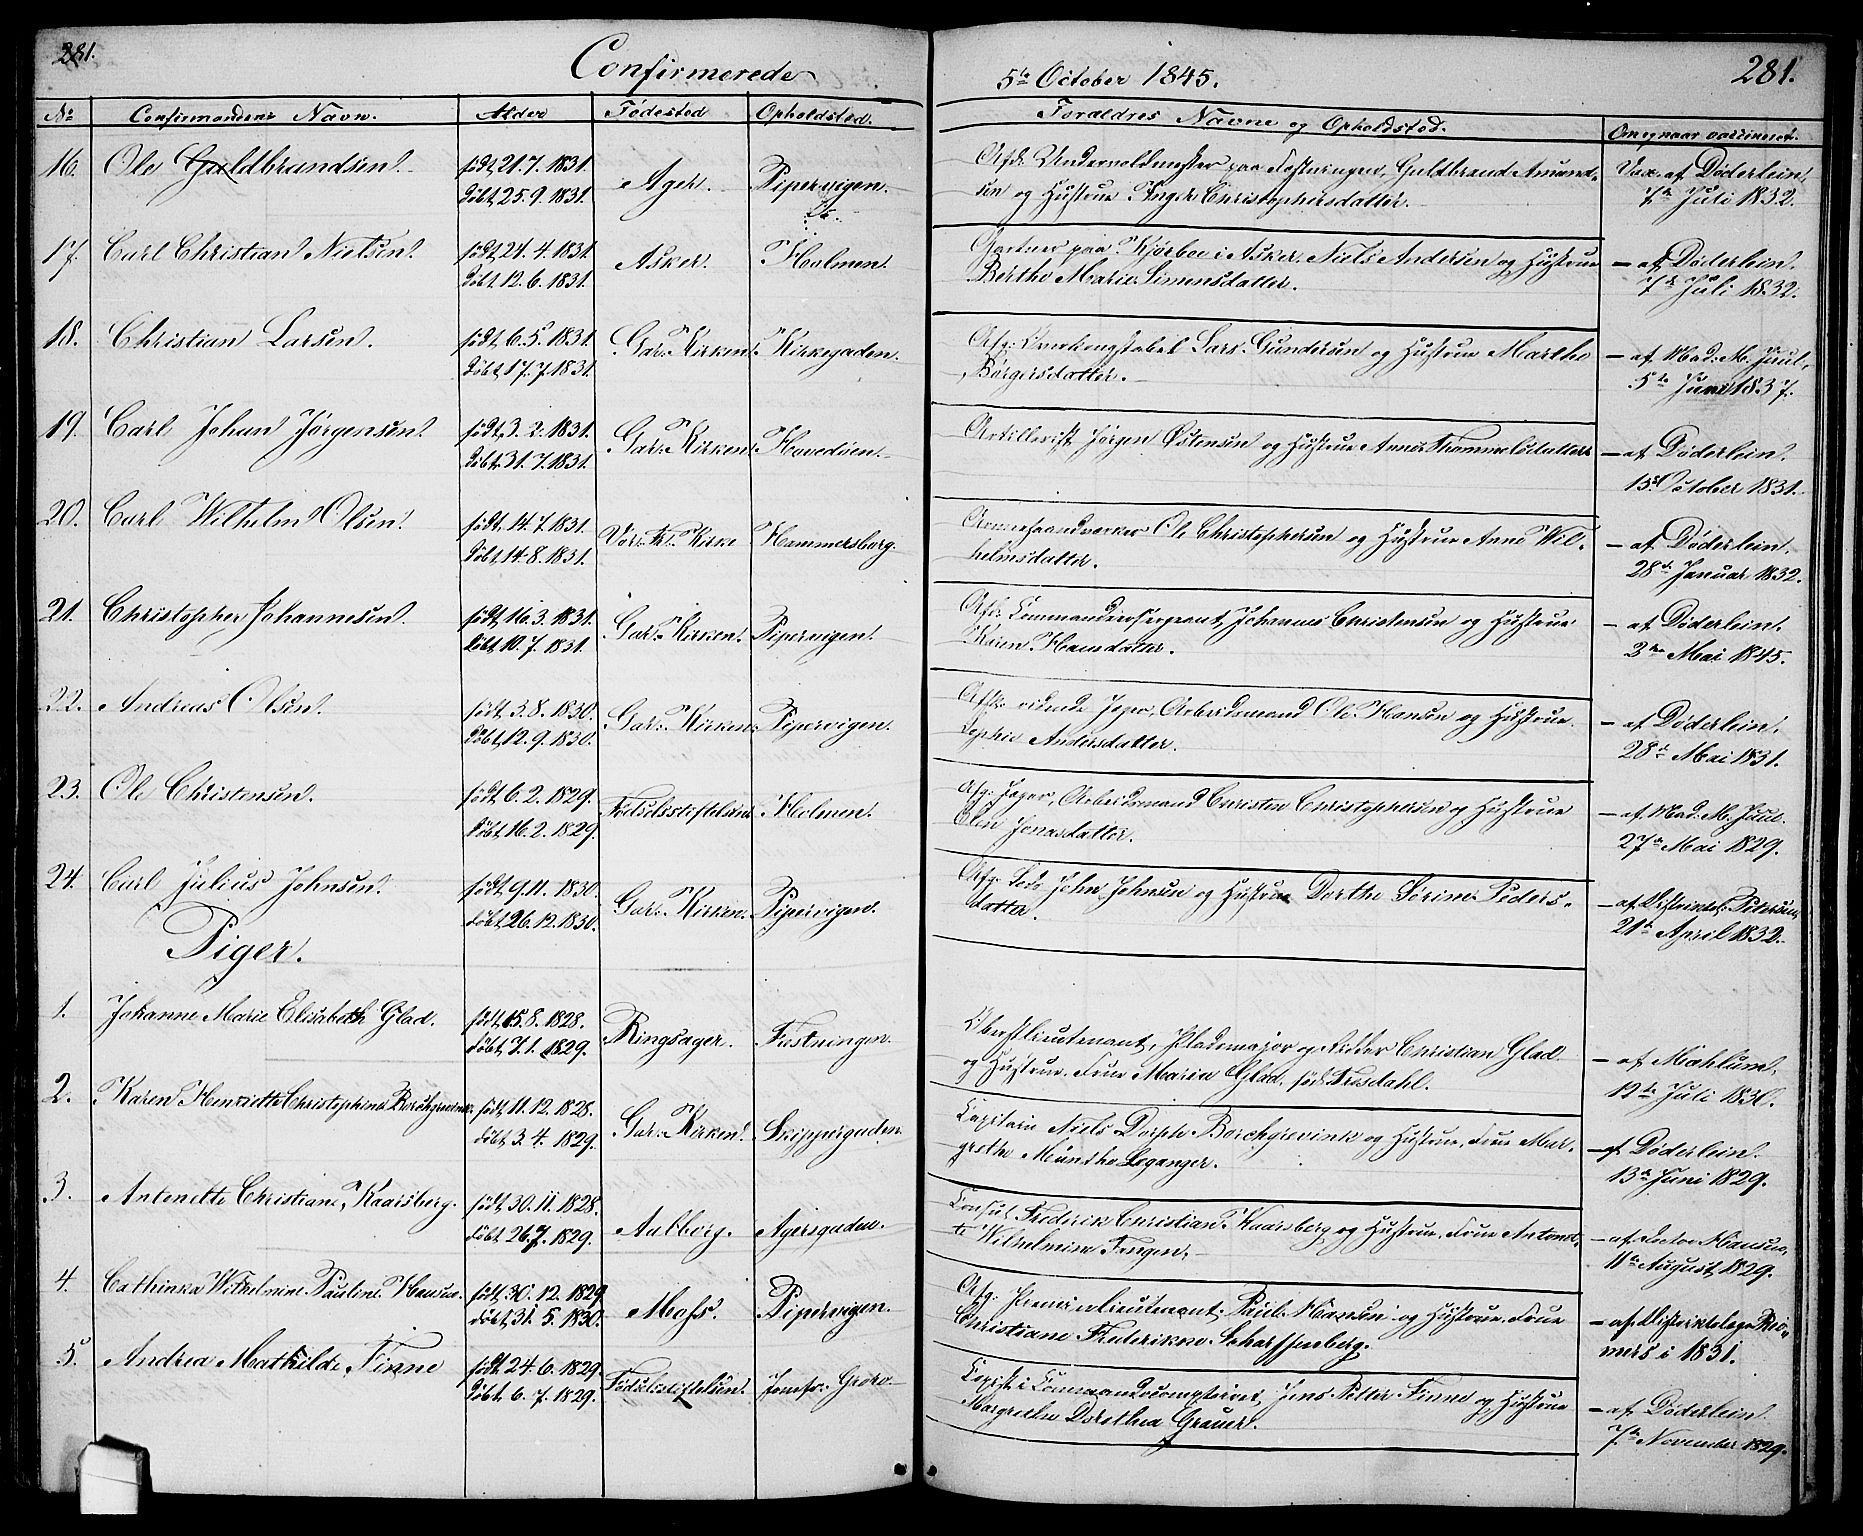 281.
Confirmerede
5te October 1845.
281.
No
Confirmandens Navn.
Alder
Fødested
Opholdsted.
Foraldres Navne og Opholdsted.
Om og naar vaccineret.
16.
Ole Guldbrandsen.
født 21. 7. 1831.
døbt 25. 9. 1831.
Ager.
Pipervigen.
Afsk. Undervoldmester paa Fæstningen, Guldbrand Amund-
sen og Hustrue Inger Christophersdatter.
Vax. af Døderlein,
7de Juli 1832.
17.
Carl Christian Nielsen.
født 24. 4. 1831.
døbt 12. 6. 1831.
Asker.
Holmen.
Gartner paa Kjørboe i Asker, Niels Andersen og Hustrue
Berthe Marie Simensdatter.
— af Døderlein.
7de Juli 1832.
18.
Christian Larsen.
født 6. 5. 1831.
døbt 17. 7. 1831.
Gar: Kirken.
Kirkegaden.
Lars Gundersen og Hustrue Marthe
Børgersdatter.
— af Mad: M. Juul,
5te Juni 1837.
19.
Carl Johan Jørgensen.
født 3. 2. 1831.
døbt 31. 7. 1831.
Gar: Kirken.
Hovedøen.
Artillerist Jørgen Østensen og Hustrue Anne Trommelsdatter
— af Døderlein.
15de October 1831.
20.
Carl Wilhelm Olsen.
født 14. 7. 1831.
døbt 14. 8. 1831.
Vor: Fr: Kirke
Hammersborg.
Ole Christophersen og Hustrue Anne Wil-
helmsdatter.
— af Døderlein.
28de Januar 1832.
21.
Christopher Johannesen.
født 16. 3. 1831.
døbt 10. 7. 1831.
Gar: Kirken.
Pipervigen.
Afsk. Commandeersergeant Johannes Christensen og Hustrue
Karen Hansdatter.
— af Døderlein.
3die Mai 1845.
22.
Andreas Olsen.
født 3. 8. 1830.
døbt 12. 9. 1830.
Gar: Kirken.
Pipervigen.
Afsk. ridende Jæger, Arbeidsmand Ole Hansen og Hustrue
Sophie Andersdatter.
— af Døderlein.
28de Mai 1831.
23.
Ole Christensen.
født 6. 2. 1829.
døbt 16. 2. 1829.
Fødselsstiftelsen
Holmen.
Afg. Jæger, Arbeidsmand Christen Christophersen og Hustrue
Olea Jonasdatter.
— af Mad: M. Juul.
27de Mai 1829.
24.
Carl Julius Johnsen.
født 9. 11. 1830
døbt 26. 12. 1830.
Gar: Kirken.
Pipervigen.
John Johnsen og Hustrue Dorthe Sørine Peders-
datter.
— af Petersen,
21de April 1832.
Piger.
1.
Johanne Marie Elisabeth Glad.
født 15. 8. 1828.
døbt 7. 1. 1829.
Ringsager.
Fæstningen.
Oberstlieutenant, Pladsmajor og Ridder Christian Glad
og Hustrue, Frue Maria Glad, fød Tresdahl.
— af Mæhlum,
12te Juli 1830.
2.
Karen Henriette Christophine Borchgrevink.
født 11. 12. 1828.
døbt 3. 4. 1829.
Gar: Kirken.
Skippergaden.
Capitain Niels Dorph Borchgrevink og Hustrue, Frue Mar-
grethe Münthe Leganger.
— af Døderlein.
13de Juni 1829.
3.
Antonette Christiane Kaarsberg.
født 30. 11. 1828.
døbt 26. 7. 1829.
Aalborg.
Agersgaden.
Consul Frederik Christian Kaarsberg og Hustrue, Frue Antonet-
te Wilhelmine Fangen,
— af Doctor Hansen,
11te August 1829.
4.
Cathinka Wilhelmine Pauline Hansen.
født 30. 12. 1829
døbt 31. 5. 1830.
Mosfs.
Pipervigen.
Afg. Premierlieutenant Paul Hansen og Hustrue, Frue
Christiane Frederikke Scharffenberg.
— af Districtslæge Rø-
mers i 1831.
5.
Andrea Mathilde Finne
født 24. 6. 1829.
døbt 6. 7. 1829.
Fødselsstiftelsen.
Copist i Commandocomptoiret Jens Petter Finne og Hustrue
Margrethe Dorethea Grauer.
— af Døderlein.
7de November 1829.